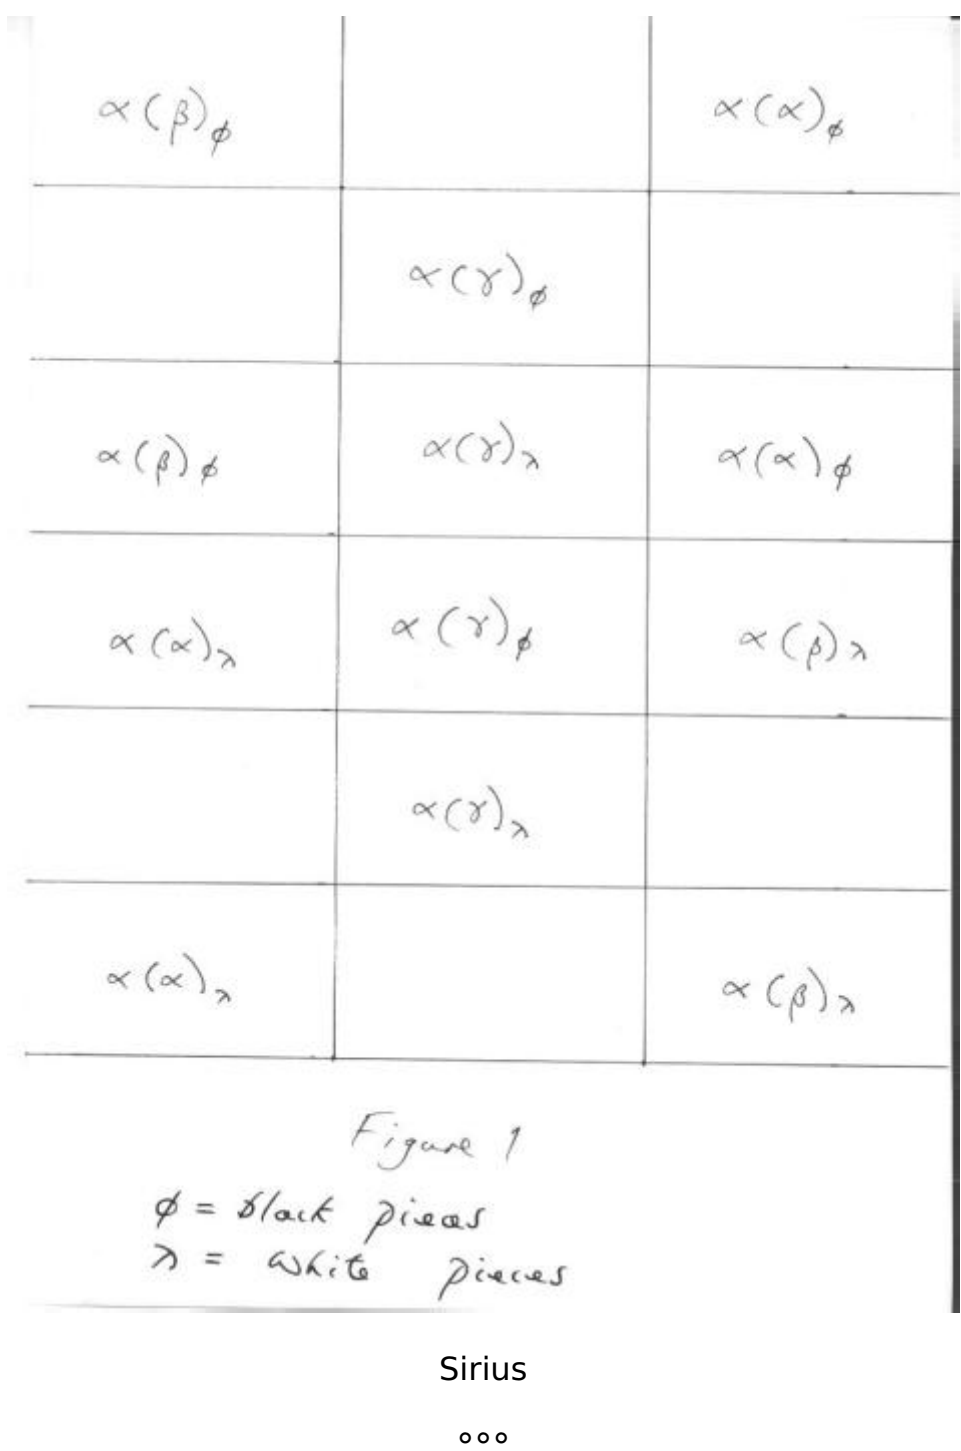 α(β)ϕ α(α)ϕ
α(γ)ϕ
α(β)ϕ α(γ)λ α(α)ϕ
α(α)λ α(γ)ϕ α(β)λ
α(γ)λ
α(α)λ α(β)λ
Figure 1
ϕ = black pieces
λ = white pieces
Sirius